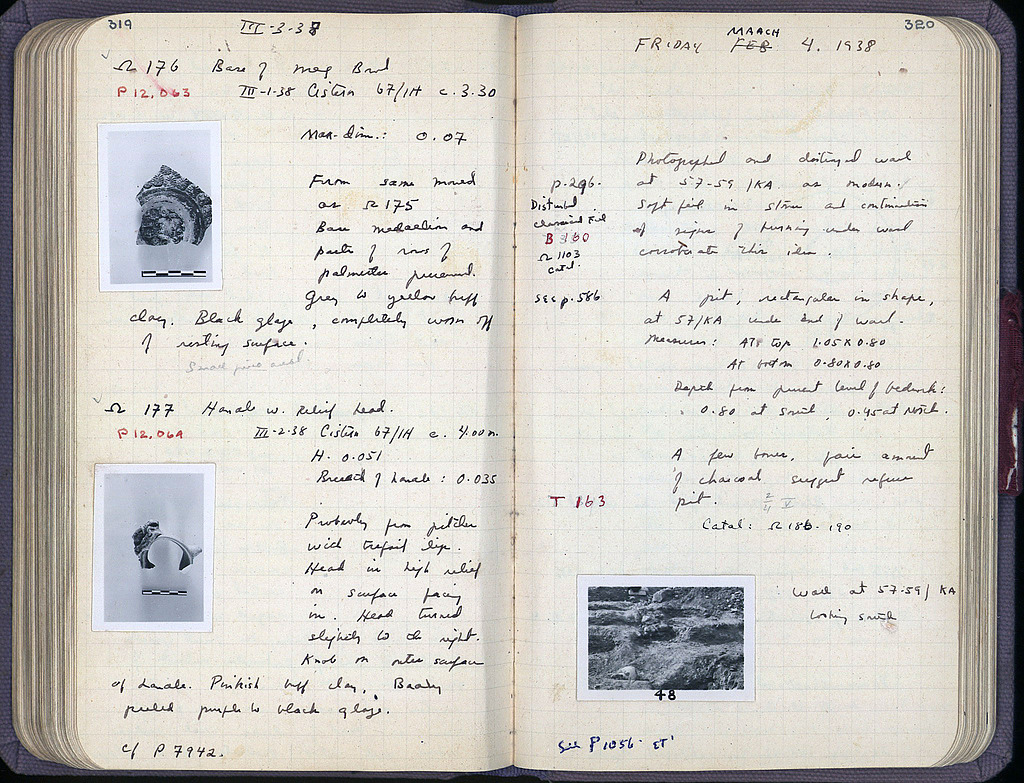 319
III-3-38
Ω 176 Base of Meg Bowl
P 12,063 III-1-38 Cistern 67/IH c. 3.30
Max-dim.: 0.07
From same mould
as Ω 175
Base medallion and
parts of rows of
palmettes preserved.
Grey to yellow buff
clay. Black glaze, completely worn off
of resting surface.
Ω 177 Handle w. relief head.
P 12,064 III-2-38 Cistern 67/IH c. 4.00m.
H. 0.051
Breadth of handle: 0.035
Probably from pitcher
with trefoil lip.
Head in high relief
on surface facing
in. Head turned
slightly to the right.
Knob on outer surface
of handle. Pinkish buff clay. Badly
peeled purple to black glaze.
cf P 7942.
320
MARCH
FRIDAY FEB 4. 1938
Photographed and destroyed wall
at 57-59/KA as modern.
Soft fill in stones and continuation
of signs of burning under wall
corroborate this idea.
p. 296.
Disturbed
classical Fill
B 160
Ω 1103
Catal.
see p. 586
A pit, rectangular in shape,
at 57/KA under end of wall.
Measures: At top 1.05 x 0.80
At bottom 0.80 x 0.80
Depth from present level of bedrock:
0.80 at South, 0.45 at North.
A few bones, fair amount
of charcoal suggest refuse
pit.
T 163
Catal: Ω 186-190
Wall at 57-59/KA
looking south
48
See P 1056 ET'